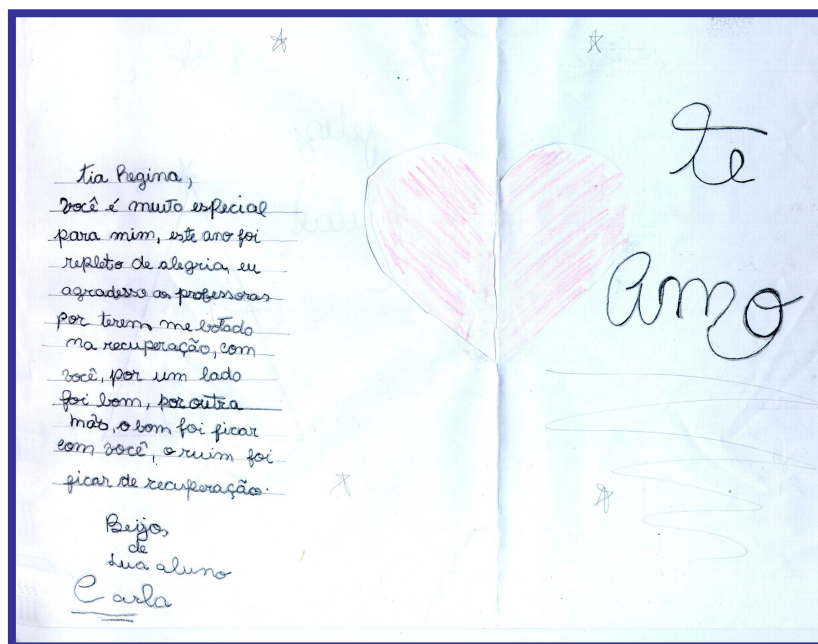 tia Regina,
você é muito especial
para mim, este ano foi
repleto de alegria, eu
agradesso as professoras
por terem me botado
na recuperação, com
você, por um lado
foi bom, por outra
mas, o bom foi ficar
com você, o ruim foi
ficar de recuperação.
Beijos
de
sua aluno
Carla
te
amo